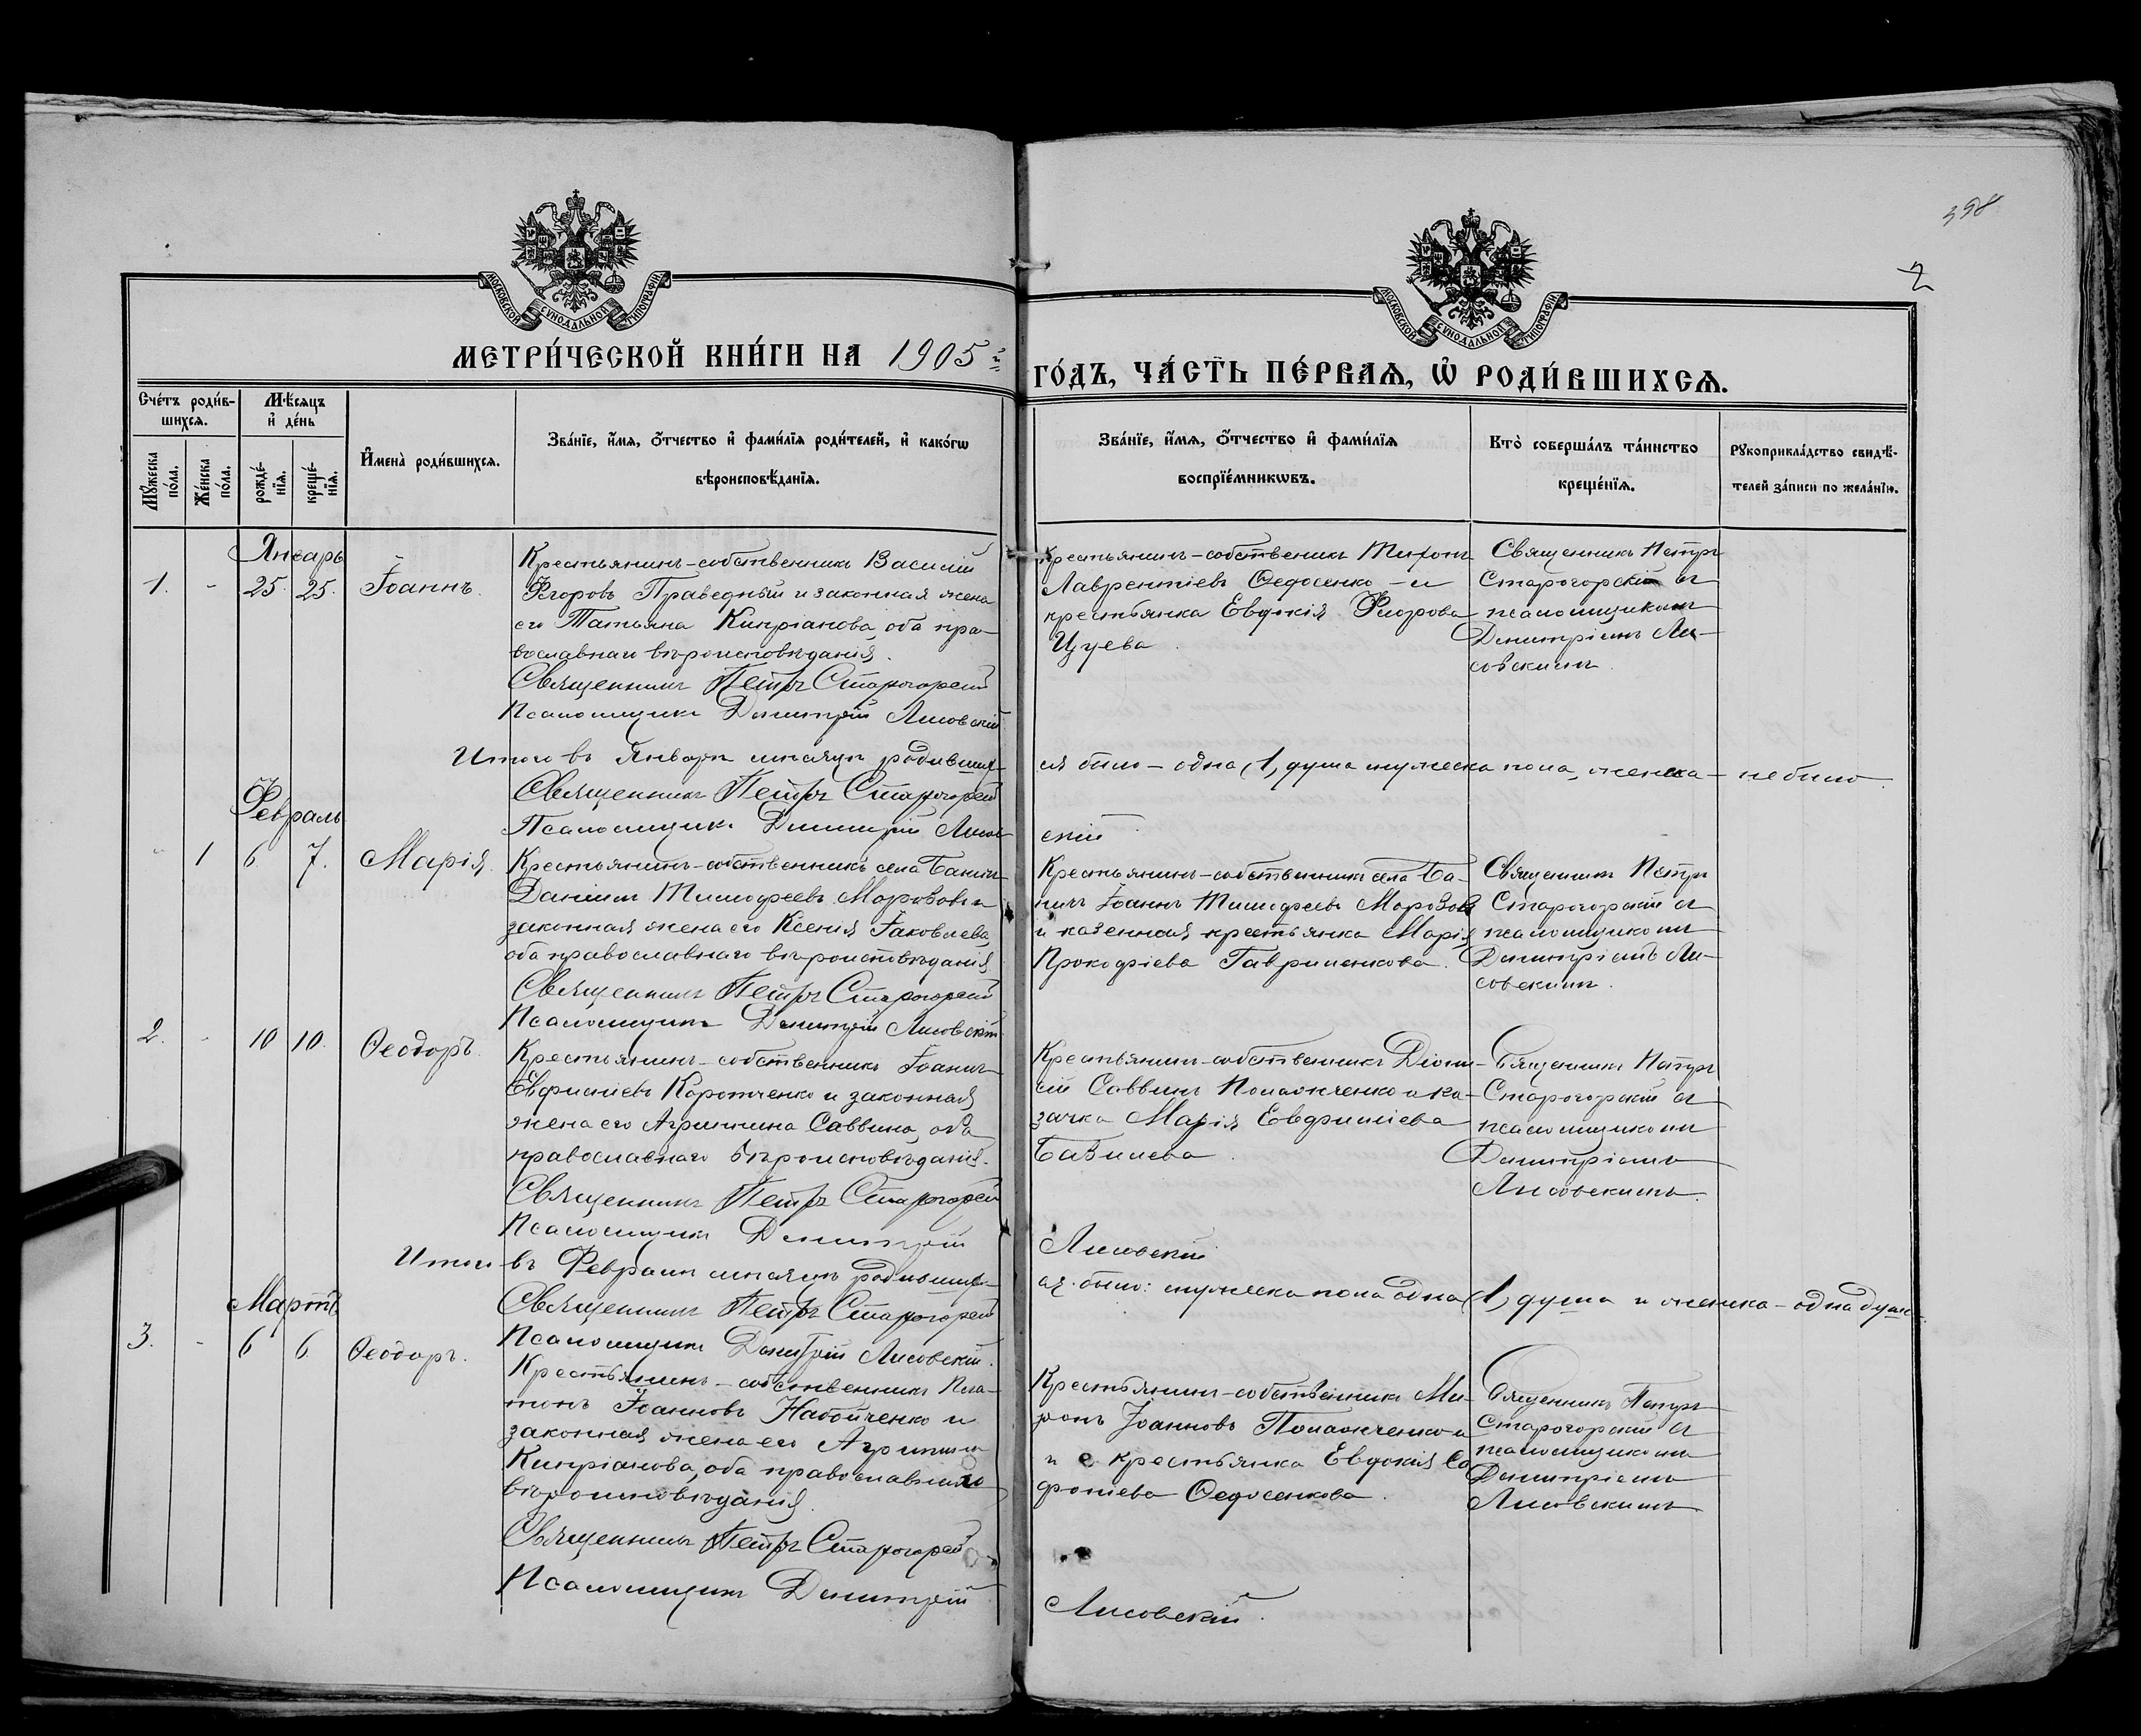 398
2
МОСКОВСКОЙ СѴНОДАЛЬНОЙ ТИПОГРАФІИ
МОСКОВСКОЙ СѴНОДАЛЬНОЙ ТИПОГРАФІИ
МЕТРИ́ЧЕСКОЙ КНИ́ГИ НА 1905 й
ГО́ДЪ, ЧА́СТЬ ПЕ́РВАѦ, Ѡ҆ РОДИ́ВШИХСѦ.
Сче́тъ роди́в-
шихсѧ.
Мꙋжеска по́ла.
Же́нска по́ла.
Мѣ́сѧцъ
и҆ де́нь
рожде́-
нїѧ.
креще́-
нїѧ.
И҆мена̀ роди́вшихсѧ.
Зва́нїе, и҆́мѧ, ѻ҆́тчество и҆ фами́лїѧ роди́телей, и҆ како́гѡ
вѣроисповѣ́данїѧ.
Зва́нїе, и҆́мѧ, ѻ҆́тчество и҆ фами́лїѧ
воспрїе́мникѡвъ.
Кто̀ соверша́лъ та́инство
креще́нїѧ.
Рꙋкоприкла́дство свидѣ́-
телей за́писи по жела́нїю.
Январь
1. - 25. 25. Іоаннъ.
Крестьянинъ-собственникъ Василій
Ѳеоровъ Праведный и законная жена
его Татьяна Кипріанова, оба пра-
вославнаго вѣроисповѣданія.
Священникъ Петръ Старогорскій
Псаломщикъ Димитрій Лисовскій
Крестьянинъ-собственикъ Тихонъ
Лаврентіевъ Ѳедосенко - и
крестьянка Евдокія Ѳеодрова
Цуева.
Священникъ Петръ
Старогорскій съ
псаломщикомъ
Димитріемъ Ли-
совскимъ.
Итого въ Январѣ мѣсяцѣ родивших-
ся было - одна (1) душа мужеска пола, женска - не было.
Священникъ Петръ Старогорскій
Псаломщикъ Димитрій Лисов-
скій
Февраль
- 1 6 7. Марія.
Крестьянинъ-собственникъ села Баничъ
Даніилъ Тимофеевъ Морозовъ и
законная жена его Ксенія Іаковлева,
оба православнаго вѣроисповѣданія.
Священникъ Петръ Старогорскій
Псаломщикъ Димитрій Лисовскій
Крестьянинъ-собственникъ села Ба-
ничъ Іоаннъ Тимофеевъ Морозовъ
и казенная крестьянка Марія
Прокофіева Гавриленкова.
Священникъ Петръ
Старогорскій съ
псаломщикомъ
Димитріемъ Ли-
совскимъ.
2. - 10 10. Ѳеодоръ.
Крестьянинъ-собственникъ Іоаннъ
Евфиміевъ Коротченко и законная
жена его Агриппина Саввина, оба
православнаго вѣроисповѣданія.
Священникъ Петръ Старогорскій
Псаломщикъ Димитрій
Лисовскій
Крестьянинъ-собственникъ Діони-
сій Саввинъ Помаженко и ка-
зачка Марія Евфиміева
Базилева.
Священникъ Петръ
Старогорскій съ
псаломщикомъ
Димитріемъ
Лисовскимъ.
Итого въ Февралѣ мѣсяцѣ родивших-
ся было: мужеска пола одна (1) душа и женска - одна душа.
Священникъ Петръ Старогорскій
Псаломщикъ Димитрій Лисовскій.
Мартъ
3. - 6 6 Ѳеодоръ.
Крестьянинъ-собственникъ Пла-
тонъ Іоанновъ Набойченко и
законная жена его Агриппина
Кипріанова, оба православнаго
вѣроисповѣданія.
Священникъ Петръ Старогорскій
Псаломщикъ Димитрій
Лисовскій.
Крестьянинъ-собственникъ Ми-
ронъ Іоанновъ
и крестьянка Евдокія Со-
фоніева Ѳедосенкова.
Священникъ Петръ
Старогорскій съ
псаломщикомъ
Димитріемъ
Лисовскимъ